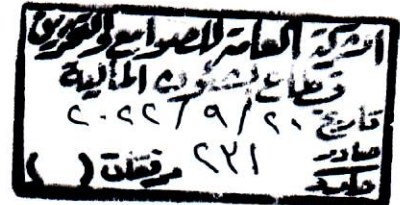 الشركة العامة للصوامع والتخزين
قطاع الشئون المالية
تاريخ ٢٠٢٢/٩/٢٠
صادر ٢٣١
مرفقات ( )